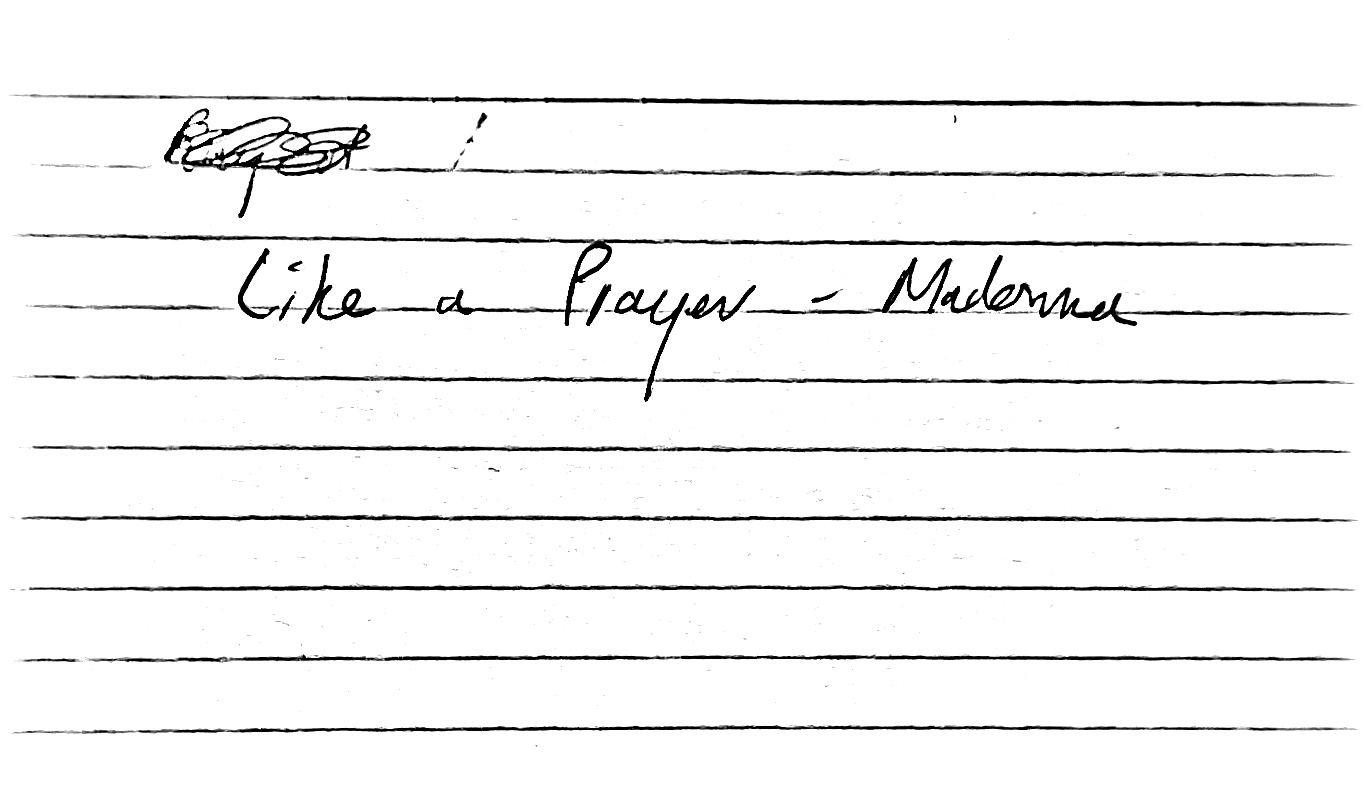 Like a Prayer - Madonna